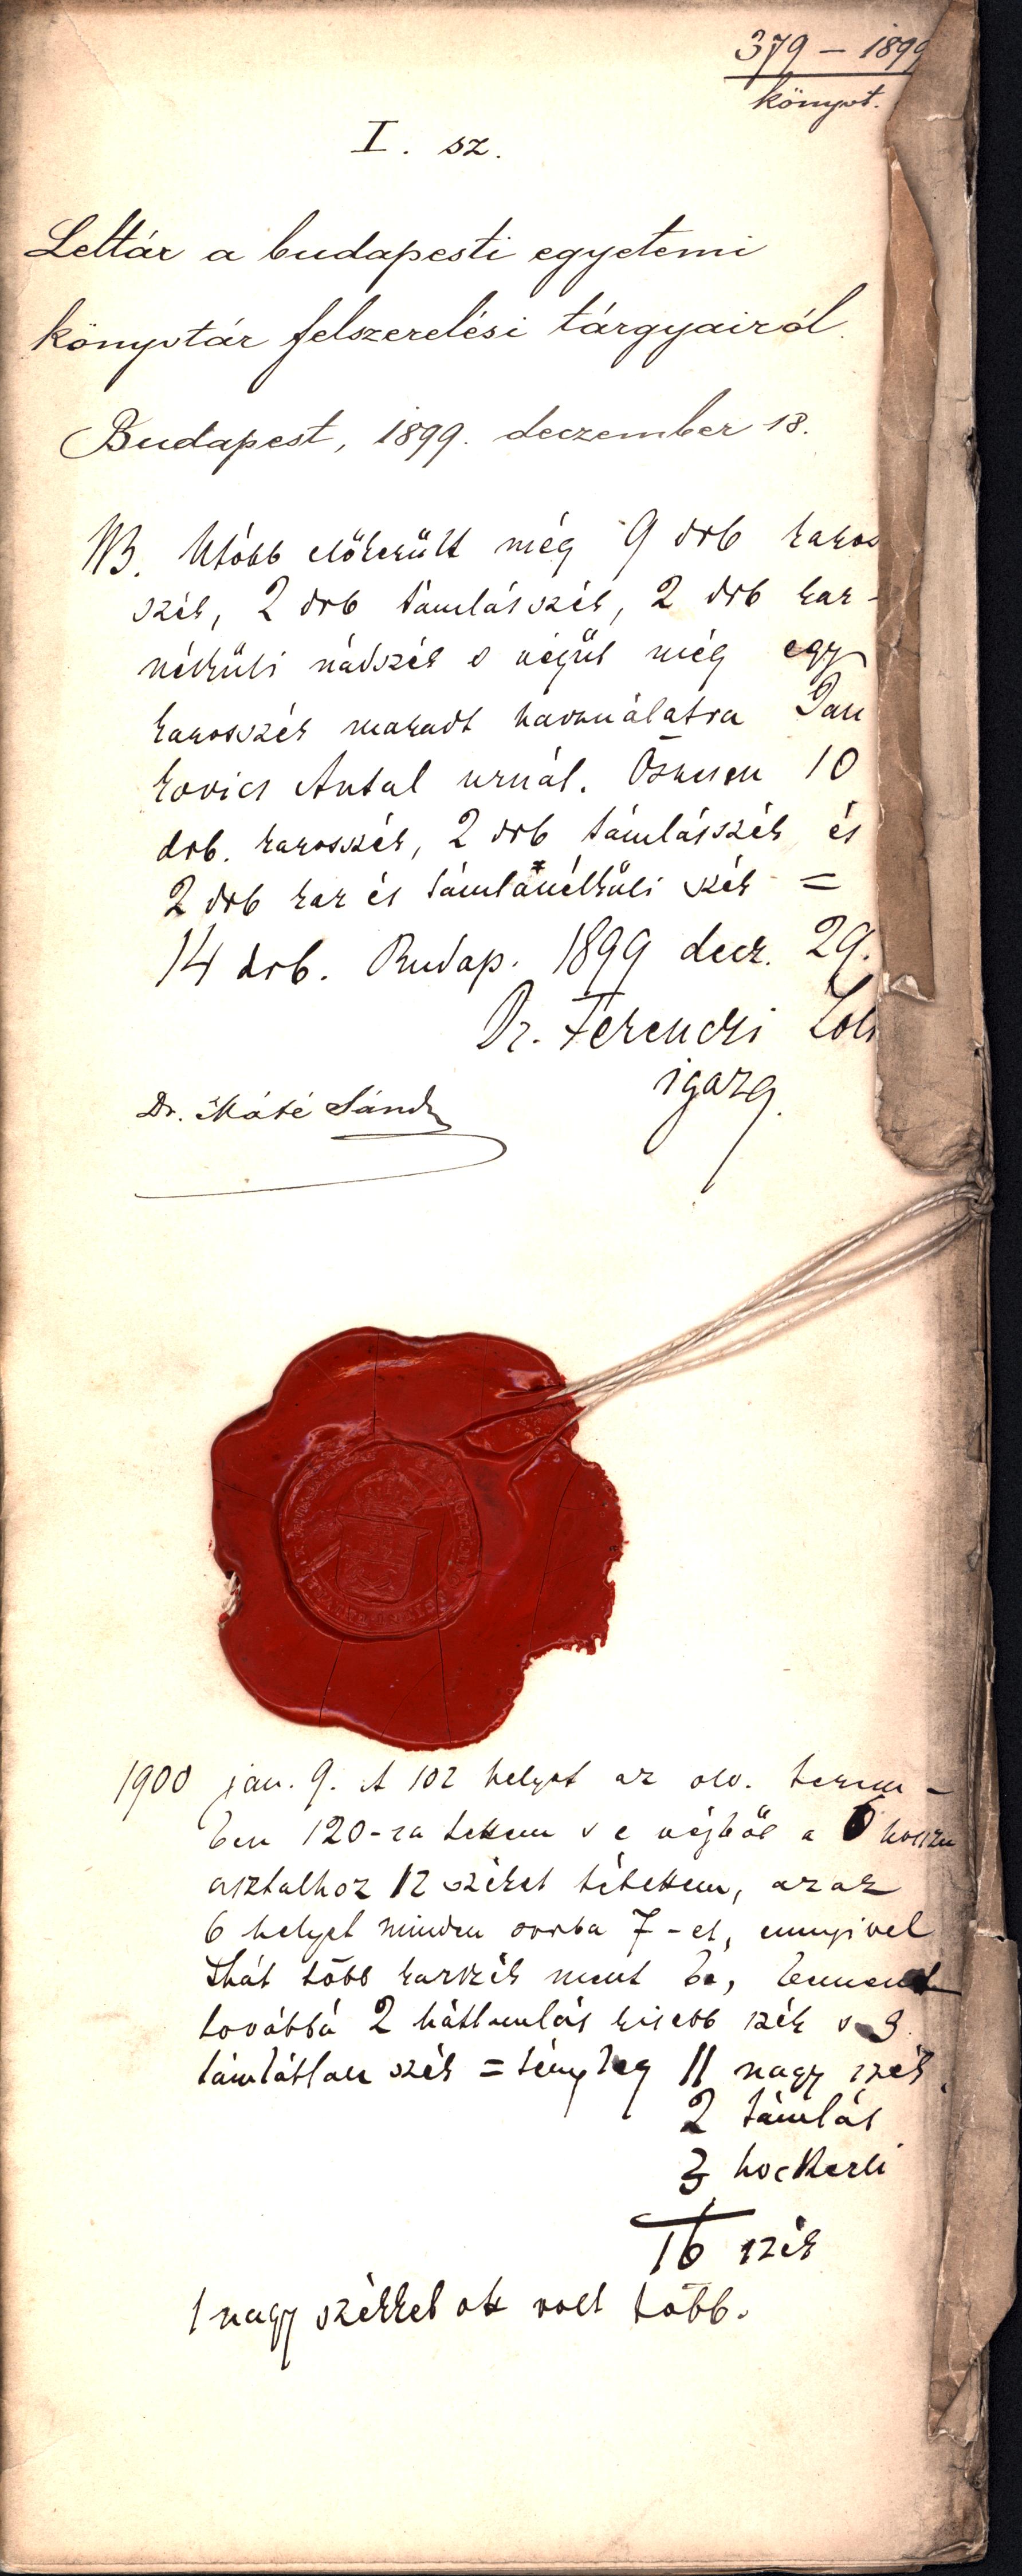 379 – 1899
könyvt.
I. sz.
Leltár a budapesti egyetemi
könyvtár felszerelési tárgyairól.
Budapest, 1899. deczember 18.
NB. Utóbb előkerült még 9 drb karos
szék, 2 drb támlásszék, 2 drb kar-
nélküli nádszék s végül még egy
karosszék maradt használatra Jan
kovics Antal urnál. Összesen 10
drb. karosszék, 2 drb támlásszék és
2 drb kar és támlánélküli szék =
14 drb. Budap. 1899 decz. 29.
Dr. Ferenczi Zolt
igazg.
Dr. Máté Sándor
1900 jan. 9. A 102 helyet az olv. terem-
ben 120-ra tettem s e végből a 6 hosszu
asztalhoz 12 széket tétettem, azaz
6 helyet minden sorba 7-et, ennyivel
thát több karszék ment be, bement
továbbá 2 háttámlás kisebb szék s 3
támlátlan szék = tényleg 11 nagy szék,
2 támlás
3 hockerli
16 szék
1 nagy székkel ott volt több.